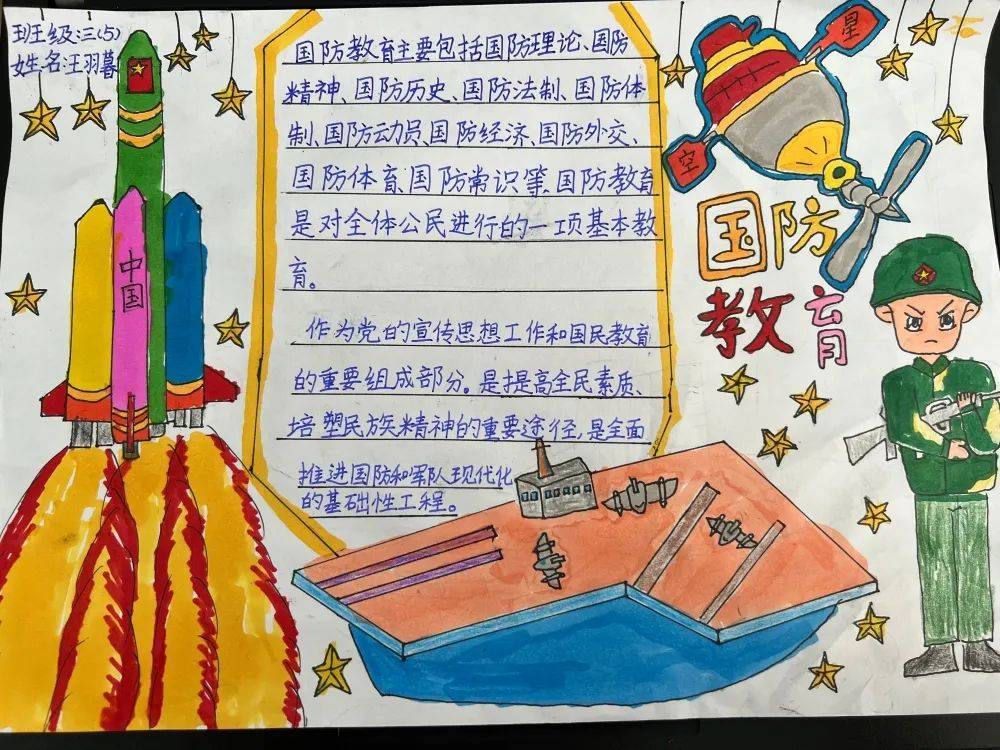 班级:三(5)
姓名:王羽暮
中国
国防教育主要包括国防理论、国防
精神、国防历史、国防法制、国防体
制、国防动员、国防经济、国防外交、
国防体育、国防常识等、国防教育
是对全体公民进行的一项基本教
育。
作为党的宣传思想工作和国民教育
的重要组成部分。是提高全民素质、
培塑民族精神的重要途径,是全面
推进国防和军队现代化
的基础性工程。
星
空
国防
教育